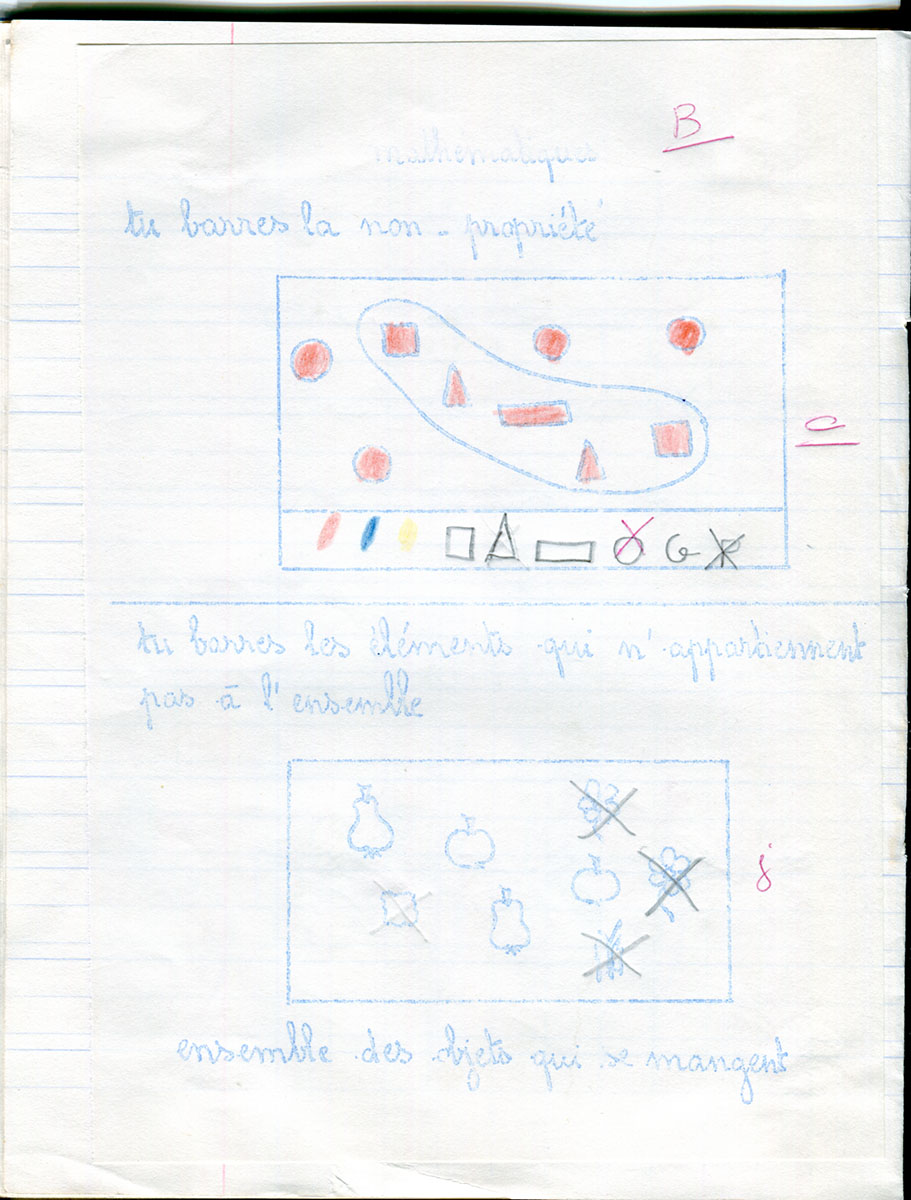 B
mathematiques
tu barres la non-propriété
C
G P
tu barres les éléments qui n'appartiennent
pas à l'ensemble
j
ensemble des objets qui se mangent